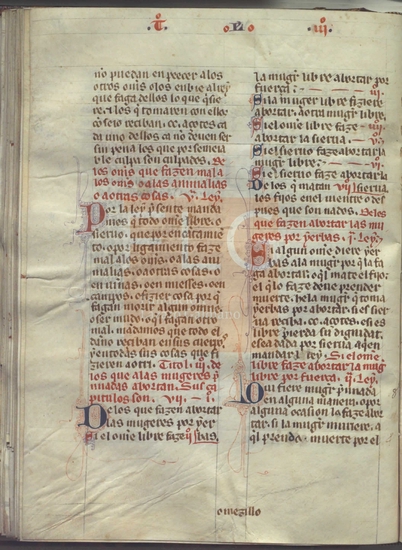 .T. .o 2 o. .III.
nõ puedan enpeecer a los
otros omẽs o los enbie al rey
que faga dellos lo que q̃sie
re. τ los q̃ tomaren con ello
cõseio reciban .cc. açotes ca
da uno dellos ca nõ deuen ser
sin pena los que por semeia
ble culpa son culpados. De
los omẽs que fazen mal a
los omẽs o a las animalias
o a otras cosas. V. Ley.
Por la ley p̃sente manda
mos q̃ todo omẽ libre o
sieruo, que por encãtamiẽ
to, o por ligamiento faze
mal a los omẽs, o a las ani
malias, o a otras cosas, o
en uinnas, o en miesses, o en
campos, o fizier cosa por q̃
fagan morir algun omne o
seer mudo, o q̃l fagan otro
mal, mãdamos que todo el
danno reciban en sus cuerpos
y en todas sus cosas que fi
zieren a otri. Titol .III. de
los que a las mugeres p̃n
nadas abortan. Sus ca
pitulos son. VII.
De los que fazen abortar
las mugieres por yer
Si el omẽ libre faze
la mugr̃ libre abortar por
fuerça. II.
Si la muger libre fiziere
abortar a otra mugr̃ libre.
Si el omẽ libre faze
abortar la sierua.
Si el sieruo faze abortar la
mugr̃ libre. VI.
Si el sieruo faze abortar la
De los q̃ matan VII sierua.
los fijos en el uientre o des
pues que son nados. De los
que fazen abortar las mu
geres por yerbas. I. Ley.
Si algun omẽ diere yer
bas a la mugr̃ por q̃ la fa
ga abortar, o q̃l mate el fijo;
el q̃ lo faze deue prender
muerte. τ la mugr̃ q̃ toma
yerbas por abortar, si es sier
ua reciba .cc. açotes, si es
libre pierda su dignidat,
τ sea dada por sierua a q̃en
mandar el rey. Si el omẽ
libre faze abortar la mugr̃
libre por fuerça. II. Ley.
Qui fiere mugr̃ p̃nnada
en alguna manera, o por
alguna ocasion la faze abor
tar, si la mugr̃ muriere, a
q̃l prenda muerte por el
omezillo